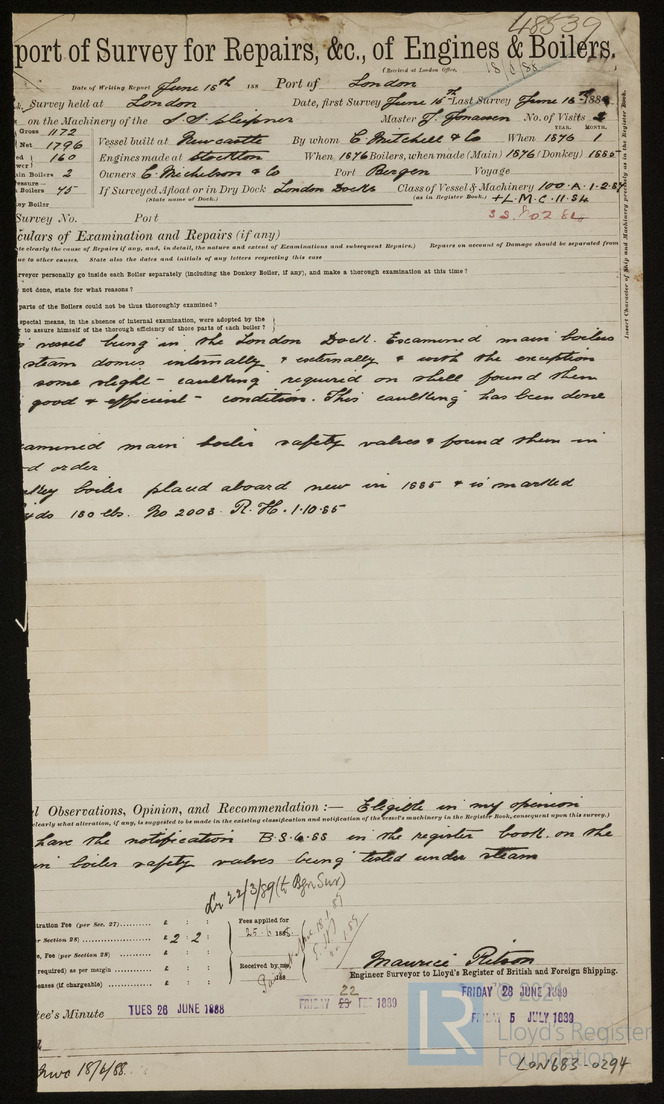 48539
port of Survey for Repairs, &c., of Engines & Boilers.
(Received at London Office, 18/6/88
Date of Writing Report June 16th 188 Port of London
Survey held at London Date, first Survey June 15th Last Survey June 16th 1888
on the Machinery of the S.S. Sleipner Master J. Jonassen No. of Visits 2
Gross 1172 YEAR. MONTH.
Net 1796 Vessel built at Newcastle By whom C. Mitchell & Co When 1876 1
160 Engines made at Stockton When 1876 Boilers, when made (Main) 1876 (Donkey) 1885
ain Boilers 2 Owners C. Michelsen & Co Port Bergen Voyage
ressure—
Boilers 75 If Surveyed Afloat or in Dry Dock London Docks Class of Vessel & Machinery 100.A.1.2.87
(State name of Dock.) (as in Register Book.) +L.M.C.11.84
ey Boiler
Survey No. Port
culars of Examination and Repairs (if any)
te clearly the cause of Repairs if any, and, in detail, the nature and extent of Examinations and subsequent Repairs.) Repairs on account of Damage should be separated from
ue to other causes. State also the dates and initials of any letters respecting this case
rveyor personally go inside each Boiler separately (including the Donkey Boiler, if any), and make a thorough examination at this time?
not done, state for what reasons?
parts of the Boilers could not be thus thoroughly examined?
special means, in the absence of internal examination, were adopted by the
r to assure himself of the thorough efficiency of those parts of each boiler?
Insert Character of Ship and Machinery precisely as in the Register Book.
s vessel being in the London Dock. Examined main boilers
steam domes internally & externally & with the exception
some slight caulking required on shell found them
good & efficient condition. This caulking has been done
xamined main boiler safety valves & found them in
d order
nkey boiler placed aboard new in 1885 & is marked
yds 130 lbs. No 2003. R.H. 1.10.85
l Observations, Opinion, and Recommendation :— Eligible in my opinion
clearly what alteration, if any, is suggested to be made in the existing classification and notification of the vessel's machinery in the Register Book, consequent upon this survey.)
have the notification B.S.6.88 in the register book. on the
in boiler safety valves being tested under steam
Lr 22/3/89 (to Bgn Sur)
tration Fee (per Sec. 27) £ : :
er Section 28) £ 2 : 2 : Fees applied for
25.6 1888.
e, Fee (per Section 28) £ : :
required) as per margin £ : : Received by me,
penses (if chargeable) £ : :
Maurice Ritson
Engineer Surveyor to Lloyd's Register of British and Foreign Shipping.
tee's Minute TUES 26 JUNE 1888 FRIDAY 22 FEB 1889 FRIDAY 28 JUNE 1889
FRIDAY 5 JULY 1889
© 2021
LR Lloyd's Register
Foundation
18/6/88.
LON683-0294